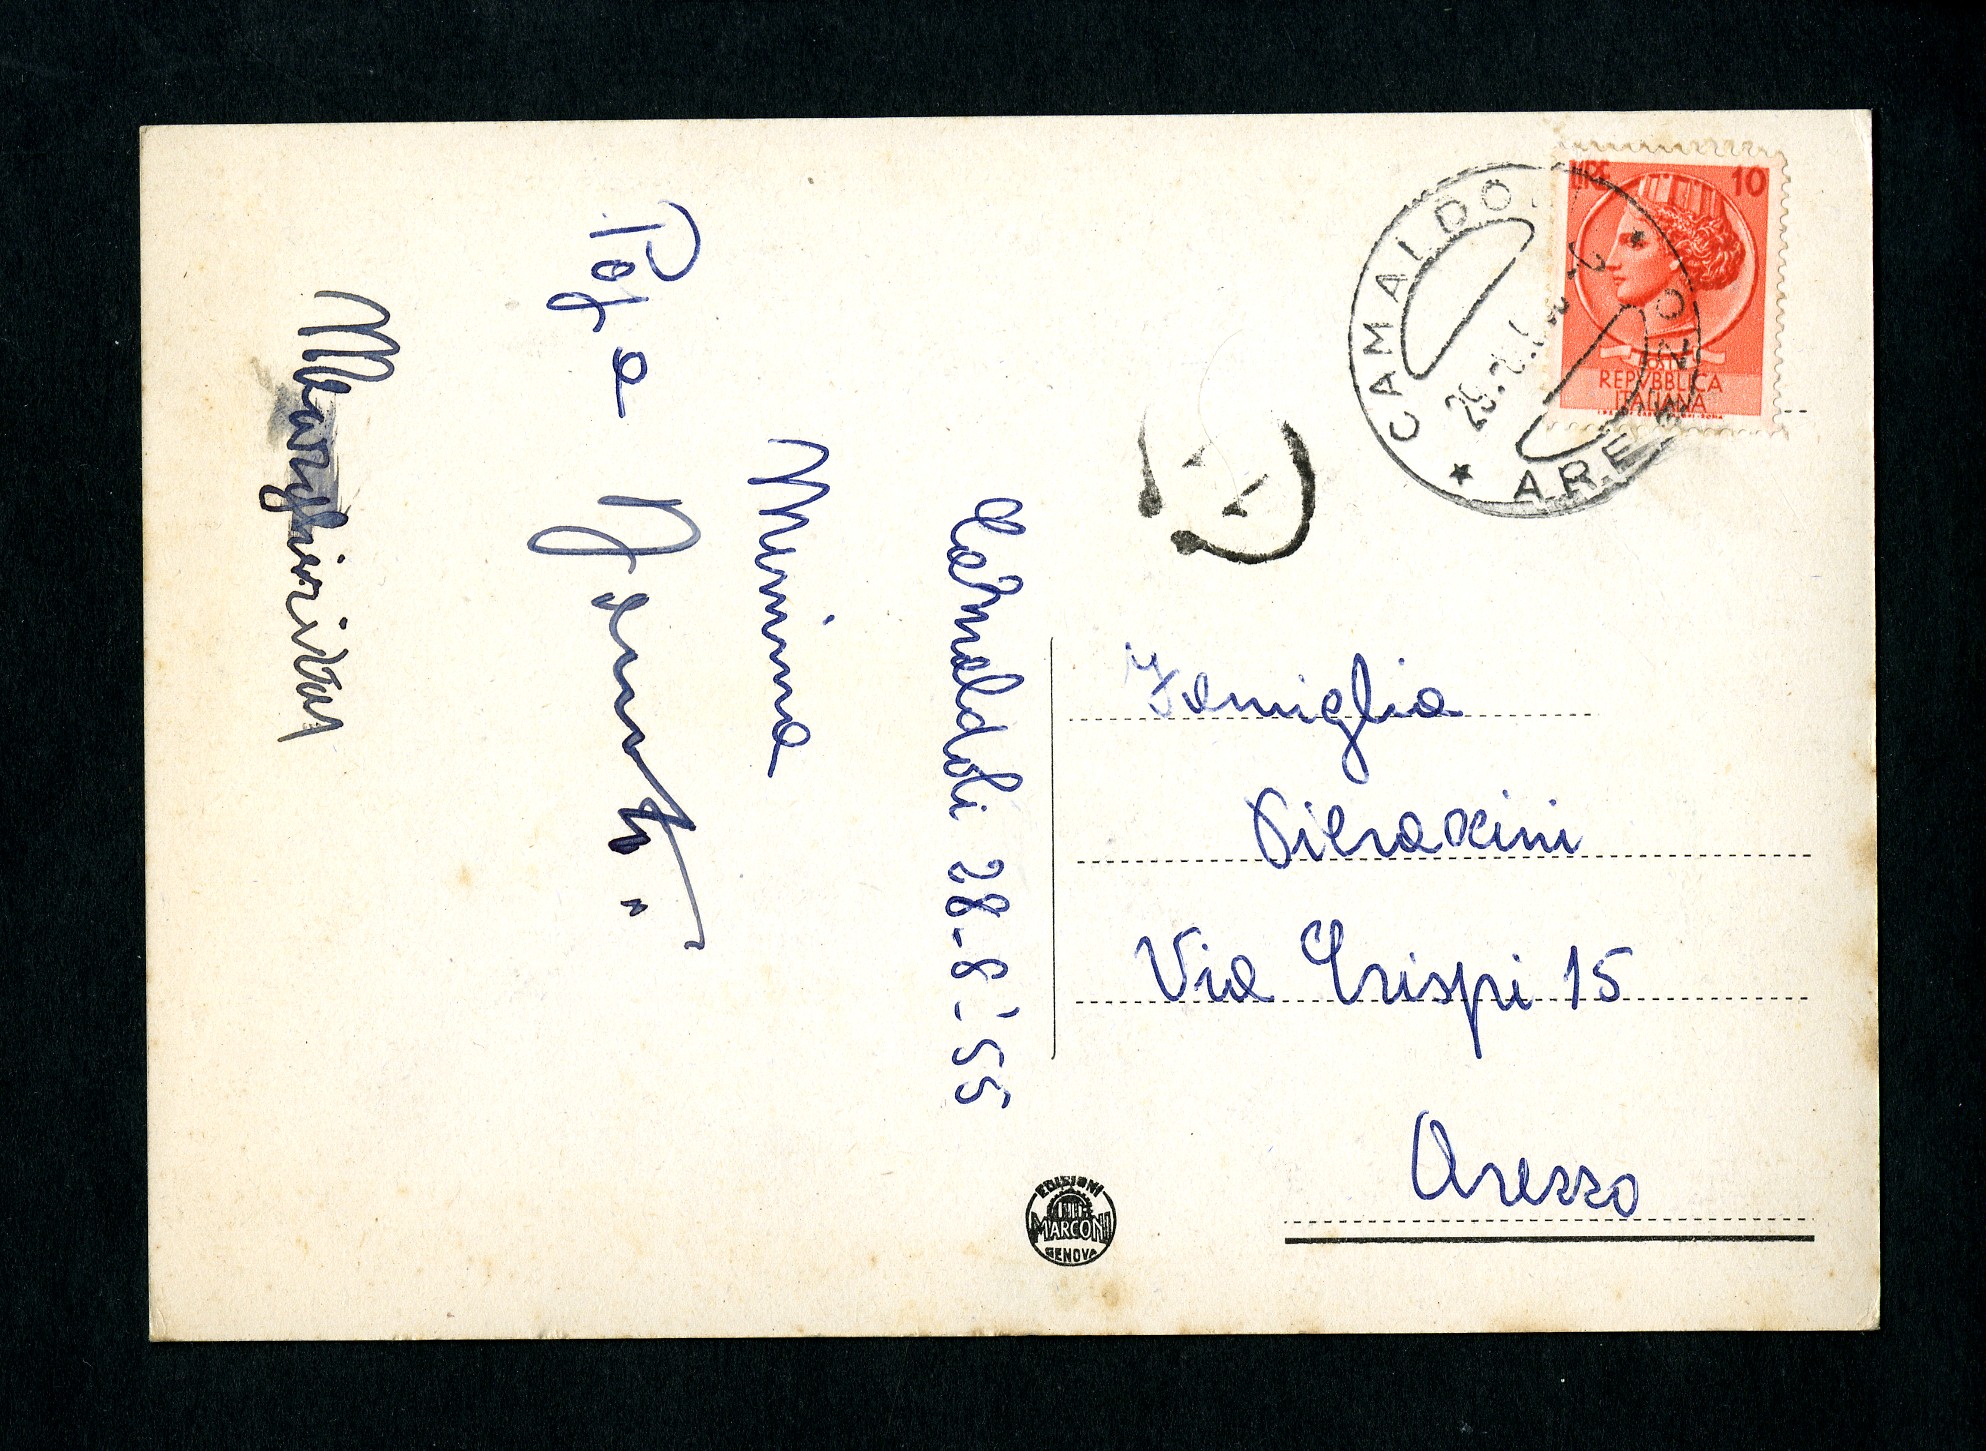 Camaldoli 28-8-'55
Mimma
Margherita
Famiglia
Pieraccini
Via Crispi 15
Arezzo
LIRE 10
POSTE
REPVBBLICA
ITALIANA
CAMALDO
AREZZO
EDIZIONI
MARCONI
GENOVA